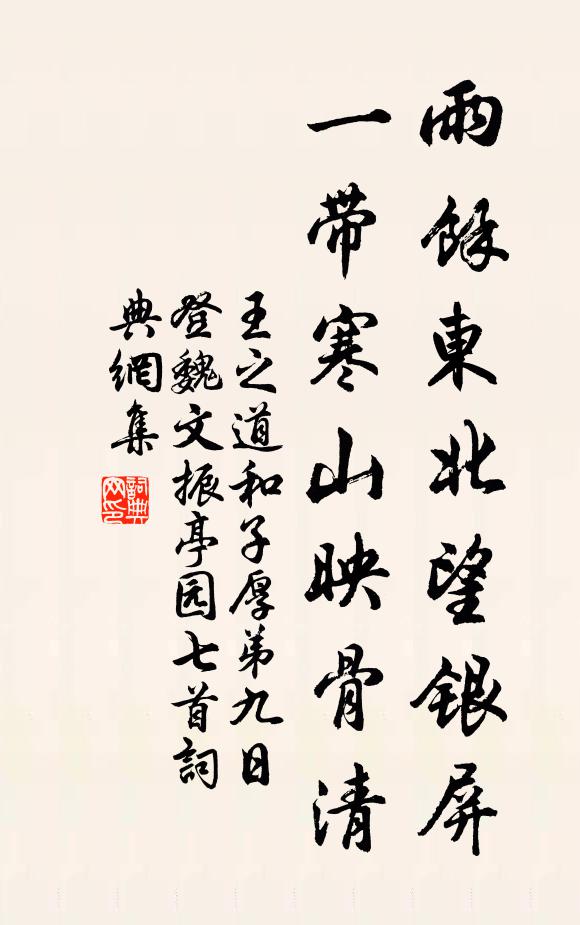 雨餘東北望銀屏
一带寒山映骨清
王之道和子厚弟九日
登魏文振亭园七首詞
典網集
詞典网印